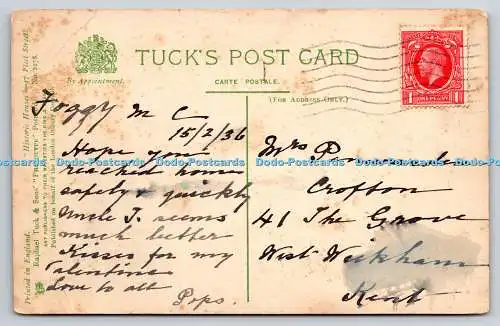 TUCK'S POST CARD
By Appointment.
CARTE POSTALE.
(FOR ADDRESS ONLY.)
Foggy M C
15/2/36
Hope you
reached home
safely & quickly
Uncle J. seems
much better
Kisses for my
Valentine
Love to all
Pops.
Mrs
Crofton
41 The Grove
West Wickham
Kent
Printed in England.
Raphael Tuck & Sons'
Published on behalf of the London
Dodo-Postcards Dodo-Postcards Dodo-Postcards Dodo-Postcards Dodo-Postcards